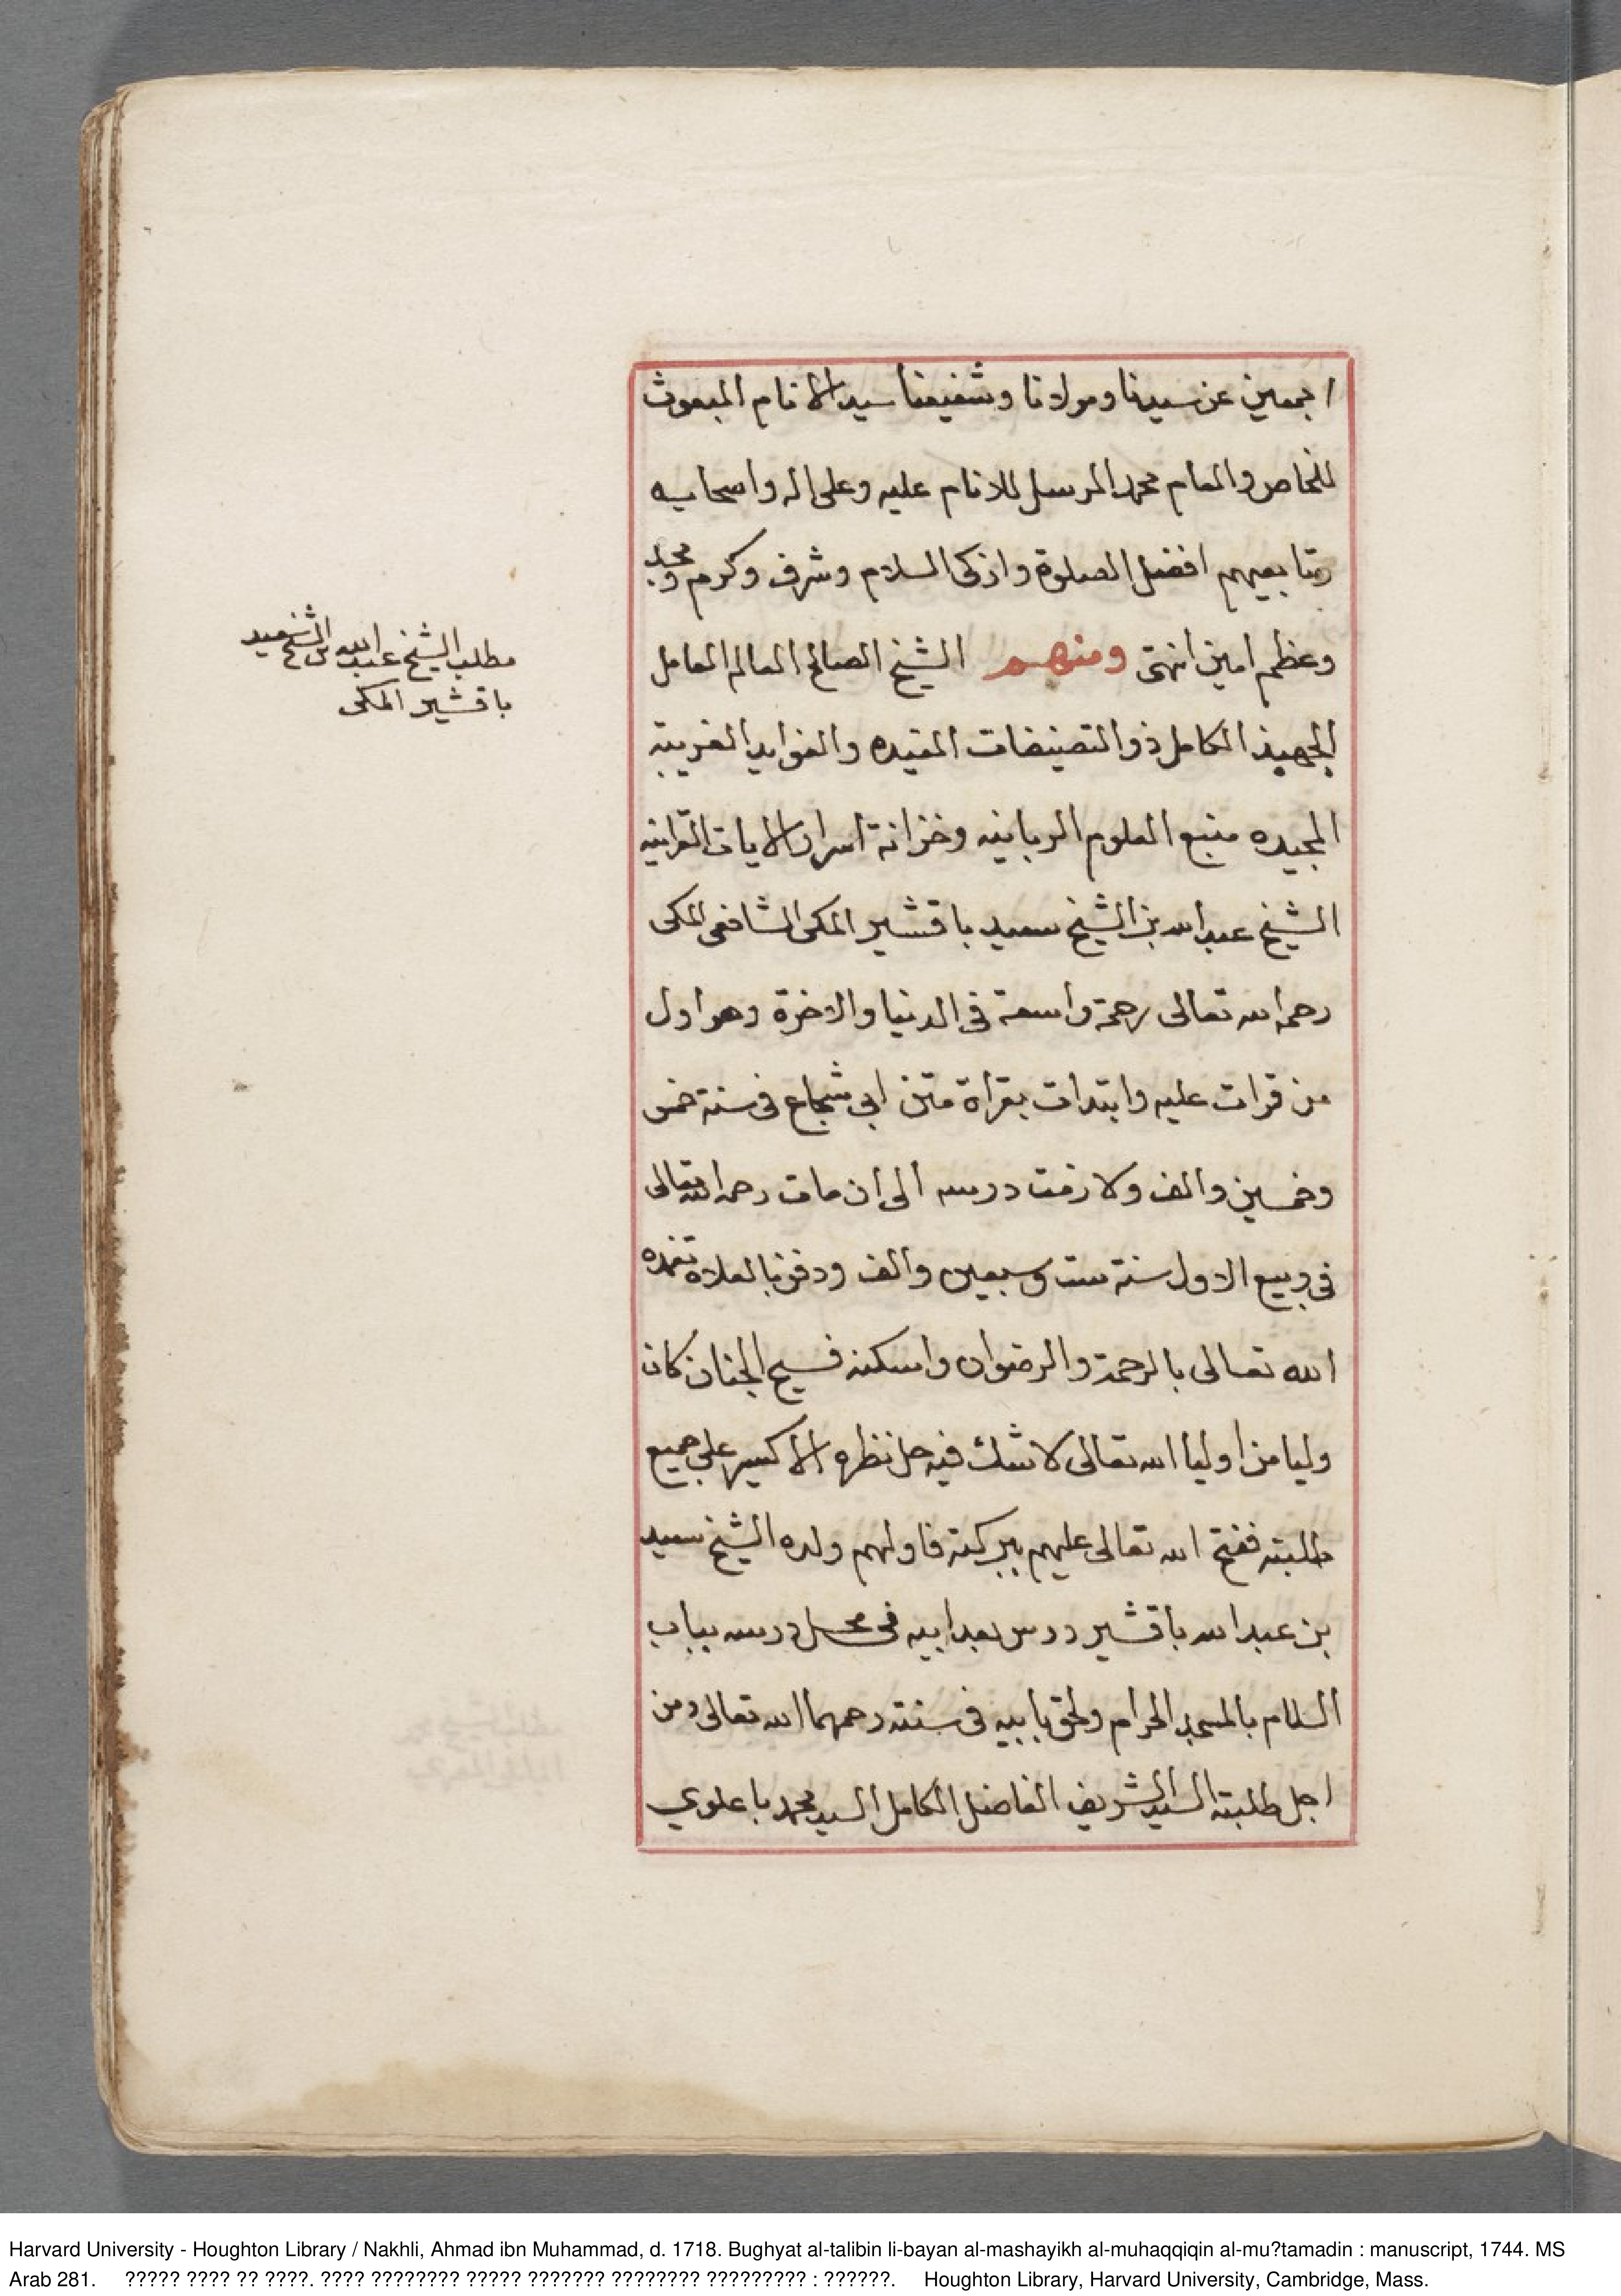 اجمعين عن سيدنا ومولانا وشفيعنا سيد الانام المبعوث
للخاص والعام محمد المرسل للانام عليه وعلى اله واصحابه
وتابعيهم افضل الصلوة وازكى السلام وشرف وكرم ومجد
وعظم امين انتهى ومنهم الشيخ الصالح العالم العامل
الجهبذ الكامل ذو التصنيفات المفيده والفوايد الغريبة
المجيده منبع العلوم الربانيه وخزانة اسرار الايات القرانيه
الشيخ عبد الله بن الشيخ سعيد باقشير المكى الشافعى المكى
رحمه الله تعالى رحمة واسعة فى الدنيا والاخرة وهو اول
من قرات عليه وابتدات بقراة متن ابى شجاع فى سنة خمس
وخمسين والف ولازمت درسه الى ان مات رحمه الله تعالى
فى ربيع الاول سنة ست وسبعين والف ودفن بالمعلاه تغمده
الله تعالى بالرحمة والرضوان واسكنه فسيح الجنان كان
وليا من اوليا الله تعالى لا شك فيه حل نظره الاكسير على جميع
طلبته ففتح الله تعالى عليهم ببركته فاولهم ولده الشيخ سعيد
بن عبد الله باقشير درس بعد ابيه فى محل درسه بباب
السلام بالمسجد الحرام ولحق بابيه فى سنته رحمهما الله تعالى ومن
اجل طلبته السيد الشريف الفاضل الكامل السيد محمد باعلوي
مطلب الشيخ عبد الله بن الشيخ سعيد
باقشير المكى
Harvard University - Houghton Library / Nakhli, Ahmad ibn Muhammad, d. 1718. Bughyat al-talibin li-bayan al-mashayikh al-muhaqqiqin al-mu?tamadin : manuscript, 1744. MS
Arab 281. ????? ???? ?? ????. ???? ???????? ????? ??????? ???????? ????????? : ??????. Houghton Library, Harvard University, Cambridge, Mass.